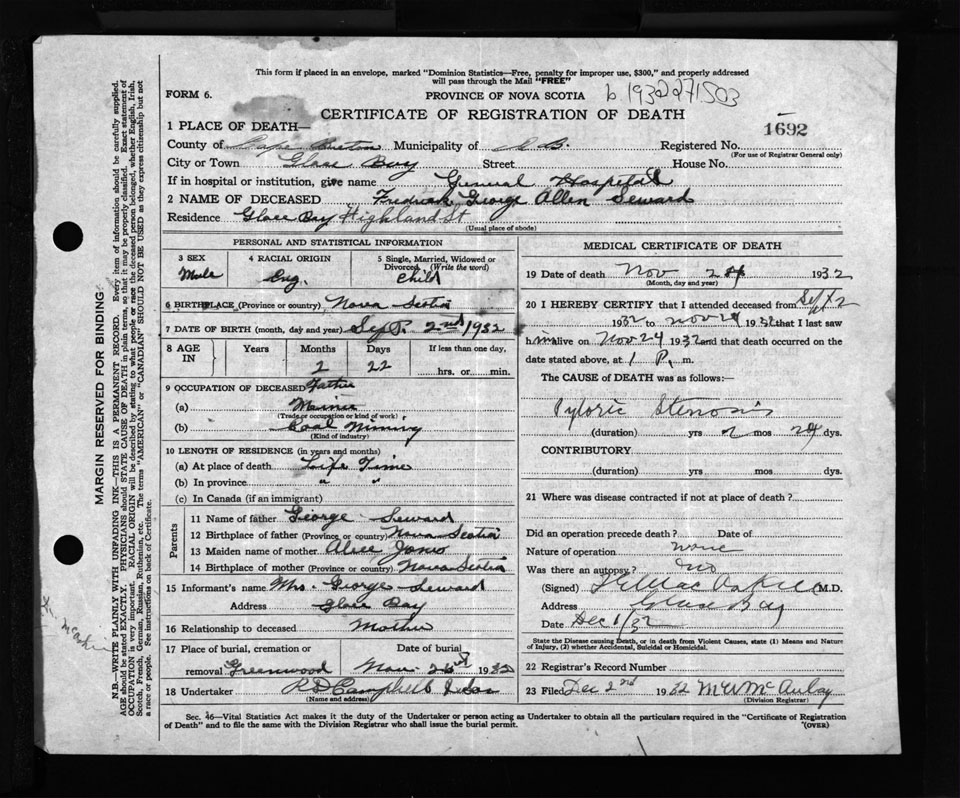 This form if placed in an envelope, marked "Dominion Statistics—Free, penalty for improper use, $300," and properly addressed
will pass through the Mail "FREE"
FORM 6.
PROVINCE OF NOVA SCOTIA
b 1932 271503
CERTIFICATE OF REGISTRATION OF DEATH
1692
1 PLACE OF DEATH—
County of Cape Breton Municipality of C B. Registered No.
(For use of Registrar General only)
City or Town Glace Bay Street House No.
If in hospital or institution, give name General Hospital
2 NAME OF DECEASED Fredrick George Allen Seward
Residence Glace Bay Highland St
(Usual place of abode)
PERSONAL AND STATISTICAL INFORMATION
3 SEX
Male
4 RACIAL ORIGIN
Eng.
5 Single, Married, Widowed or
Divorced (Write the word)
Child
6 BIRTHPLACE (Province or country) Nova Scotia
7 DATE OF BIRTH (month, day and year) Sept. 2nd 1932
8 AGE IN
Years
Months
2
Days
22
If less than one day,
hrs. or min.
9 OCCUPATION OF DECEASED Father
(a) Miner
(Trade or occupation or kind of work)
(b) Coal Mining
(Kind of industry)
10 LENGTH OF RESIDENCE (in years and months)
(a) At place of death Life Time
(b) In province " "
(c) In Canada (if an immigrant)
Parents
11 Name of father George Seward
12 Birthplace of father (Province or country) Nova Scotia
13 Maiden name of mother Alice Jones
14 Birthplace of mother (Province or country) Nova Scotia
15 Informant's name Mrs. George Seward
Address Glace Bay
16 Relationship to deceased Mother
17 Place of burial, cremation or Date of burial
removal Greenwood Nov. 26 1932
18 Undertaker R D Campbell & Son
(Name and address)
MEDICAL CERTIFICATE OF DEATH
19 Date of death Nov 24 1932
(Month, day and year)
20 I HEREBY CERTIFY that I attended deceased from Sept 2
1932 to Nov 24 1932 that I last saw
him alive on Nov 24 1932 and that death occurred on the
date stated above, at 1 P. m.
The CAUSE of DEATH was as follows:—
Pyloric Stenosis
(duration) yrs 2 mos 24 dys.
CONTRIBUTORY
(duration) yrs mos dys.
21 Where was disease contracted if not at place of death?
Did an operation precede death? Date of
Nature of operation none
Was there an autopsy? no
(Signed) M.D.
Address Glace Bay
Date Dec 1/32
State the Disease causing Death, or in death from Violent Causes, state (1) Means and Nature
of Injury, (2) whether Accidental, Suicidal or Homicidal.
22 Registrar's Record Number
23 Filed Dec 2nd 1932 McAulay
(Division Registrar)
Sec. 46—Vital Statistics Act makes it the duty of the Undertaker or person acting as Undertaker to obtain all the particulars required in the "Certificate of Registration
of Death" and to file the same with the Division Registrar who shall issue the burial permit. (OVER)
MARGIN RESERVED FOR BINDING
N.B.—WRITE PLAINLY WITH UNFADING INK—THIS IS A PERMANENT RECORD. Every item of information should be carefully supplied.
AGE should be stated EXACTLY. PHYSICIANS should STATE CAUSE OF DEATH in plain terms, so that it may be properly classified. Exact statement of
OCCUPATION is very important. RACIAL ORIGIN will be described by stating to what people or race the deceased person belonged, whether English, Irish,
Scotch, French, German, Russian, Ruthenian, etc. The terms "AMERICAN" or "CANADIAN" SHOULD NOT BE USED as they express citizenship but not
a race or people. See instructions on back of Certificate.